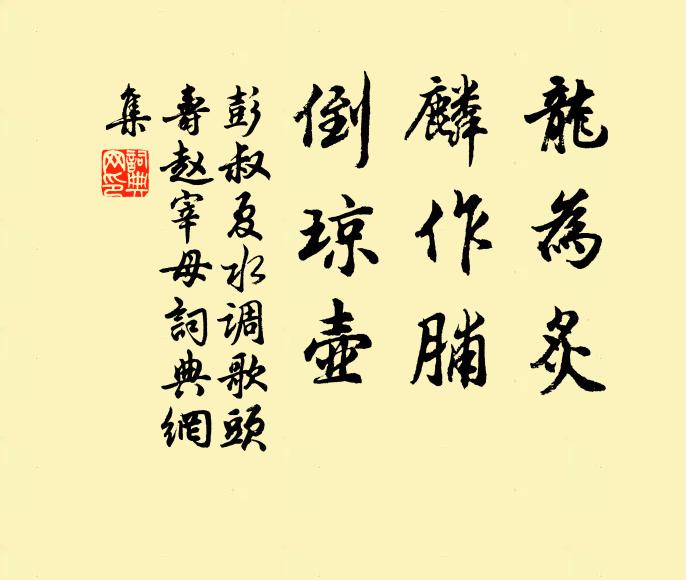 龍為炙
麟作脯
倒琼壺
彭叔夏水调歌頭
壽赵宰母詞典網
集
詞典
网印